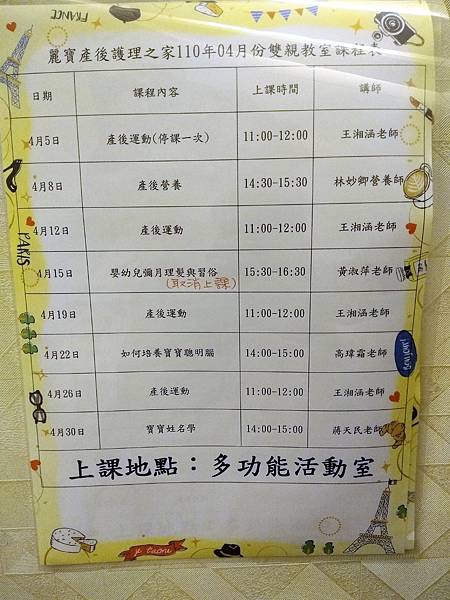 FRANCE
麗寶產後護理之家110年04月份雙親教室課程表
日期 課程內容 上課時間 講師
4月5日 產後運動(停課一次) 11:00-12:00 王湘涵老師
4月8日 產後營養 14:30-15:30 林妙卿營養師
4月12日 產後運動 11:00-12:00 王湘涵老師
4月15日 嬰幼兒彌月理髮與習俗 15:30-16:30 黃淑萍老師
(取消上課)
4月19日 產後運動 11:00-12:00 王湘涵老師
4月22日 如何培養寶寶聰明腦 14:00-15:00 高瑋霜老師
4月26日 產後運動 11:00-12:00 王湘涵老師
4月30日 寶寶姓名學 14:00-15:00 蔣天民老師
上課地點：多功能活動室
PARIS
PARIS
Bonjour!
je t'aime